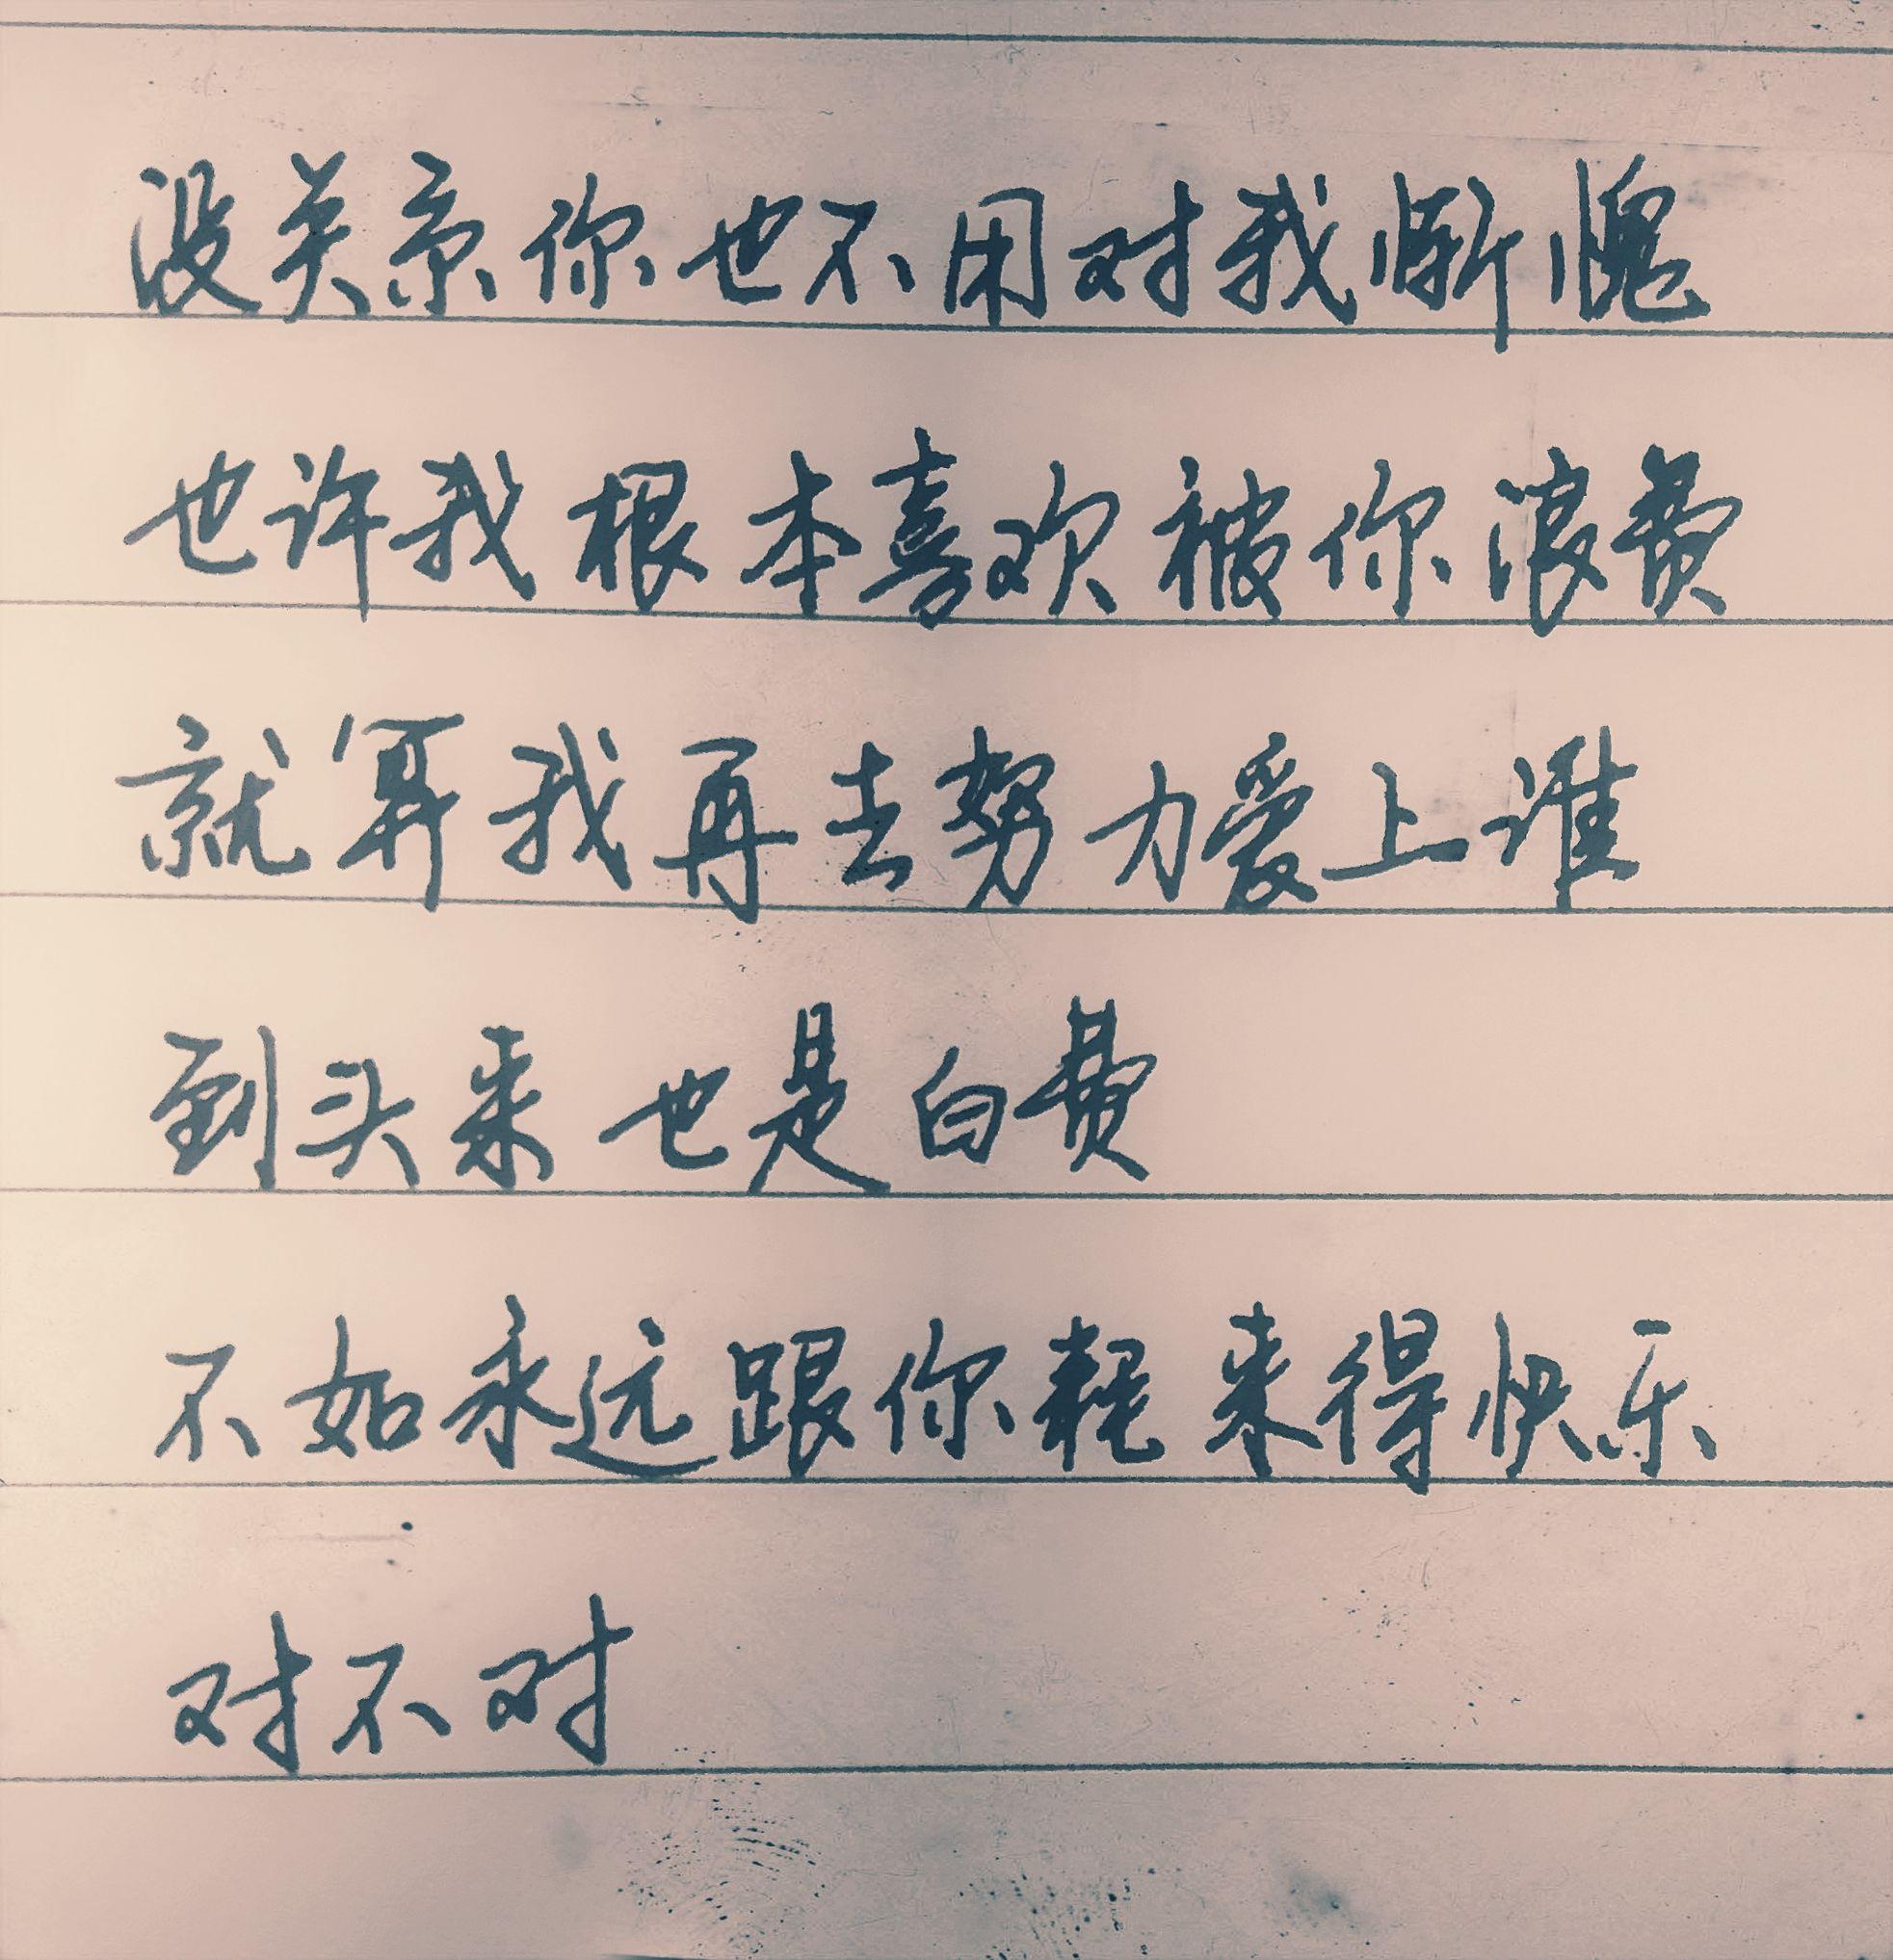 没关系你也不用对我惭愧
也许我根本喜欢被你浪费
就算我再去努力爱上谁
到头来也是白费
不如永远跟你耗来得快乐
对不对